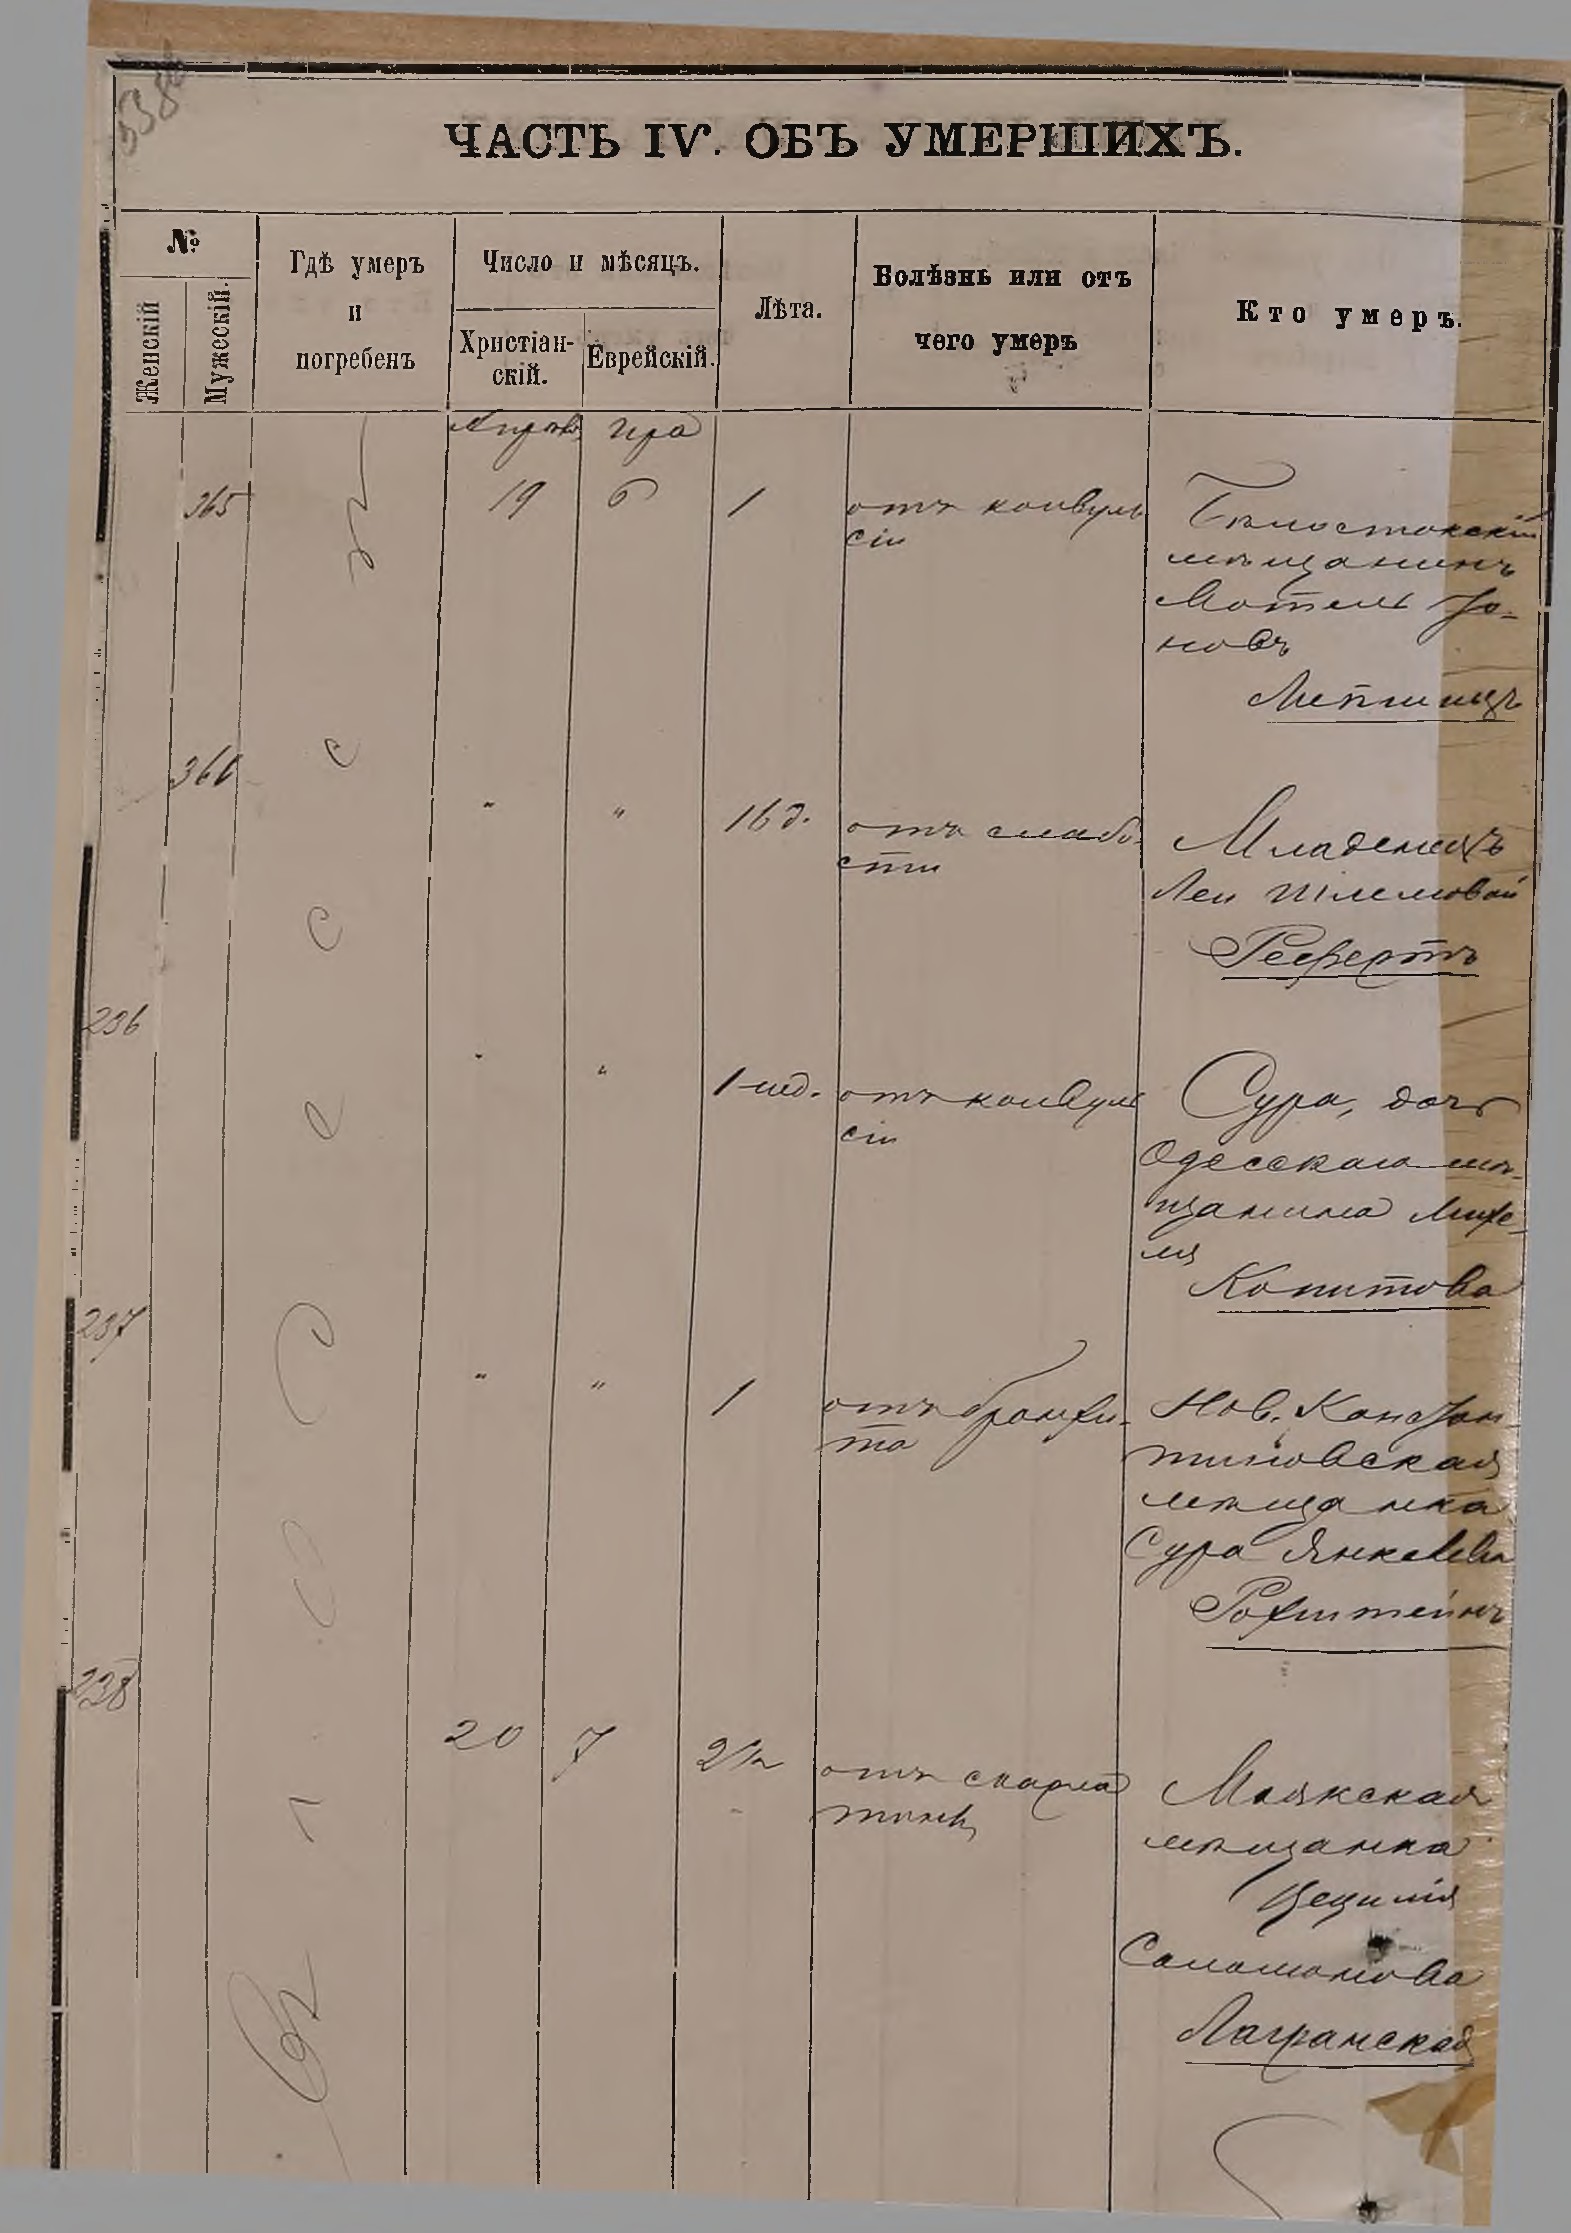 538
ЧАСТЬ IV. ОБЪ УМЕРШИХЪ.
№
Женскій
Мужескій.
Гдѣ умеръ
и
погребенъ
Число и мѣсяцъ.
Христіан-
скій.
Еврейскій.
Лѣта.
Болѣзнь или отъ
чего умеръ
Кто умеръ.
Въ Одессѣ
Апрѣль Ира
365 19 6 1 отъ конвуль
сіи
Бѣлостокскій
мѣщанинъ
Мотель Іо-
новъ
Лифшицъ
366 " " 16 д. отъ слабо-
сти
Младенецъ
Леи Шлемовой
Рефертъ
236 " " 1 нед. отъ конвуль
сіи
Сура, дочь
Одесскаго мѣ-
щанина Михе-
ля
Копитова
237 " " 1 отъ бронхи-
та
Нов. Констан-
тиновская
мѣщанка
Сура Янкелева
Рохштейнъ
238 20 7 2½ отъ скарла
тины
Маякская
мѣщанка
Цецилія
Саломонова
Лагранская